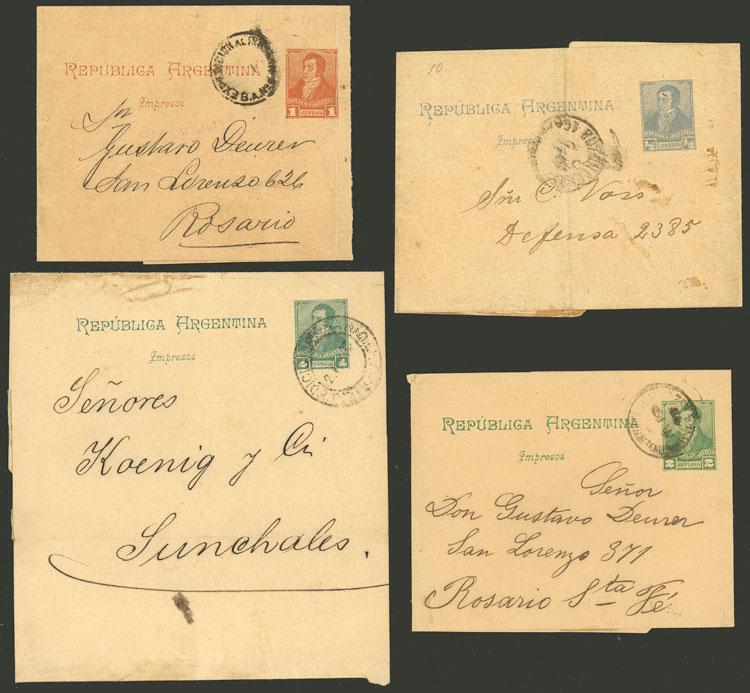 REPÚBLICA ARGENTINA
Impresos
1 CENTAVO 1
Sn
Gustavo Deurer
San Lorenzo 626
Rosario
10
REPÚBLICA ARGENTINA
Impresos
1/2 CENTAVO 1/2
Sñr C. Voss
Defensa 2385
REPÚBLICA ARGENTINA
Impresos
4 CENTAVOS 4
Señores
Koenig y Ci
Sunchales.
REPÚBLICA ARGENTINA
Impresos
2 CENTAVOS 2
Señor
Don Gustavo Deurer
San Lorenzo 371
Rosario Sta Fé